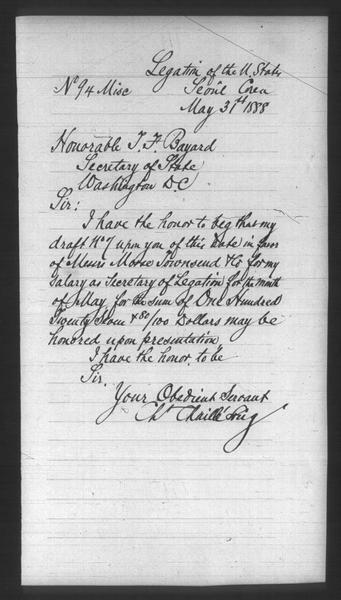 Legation of the U. States
Nº 94 Misc Seoul Corea
May 31st 1888
Honorable T. F. Bayard
Secretary of State
Washington D.C
Sir:
I have the honor to beg that my
draft No 7 upon you of this date in favor
of Messrs Morse Townsend & Co for my
Salary as Secretary of Legation for the month
of May for the sum of One Hundred
Twenty Four & 80/100 Dollars may be
honored upon presentation
I have the honor to be
Sir,
Your Obedient Servant
Chs Chaillé Long